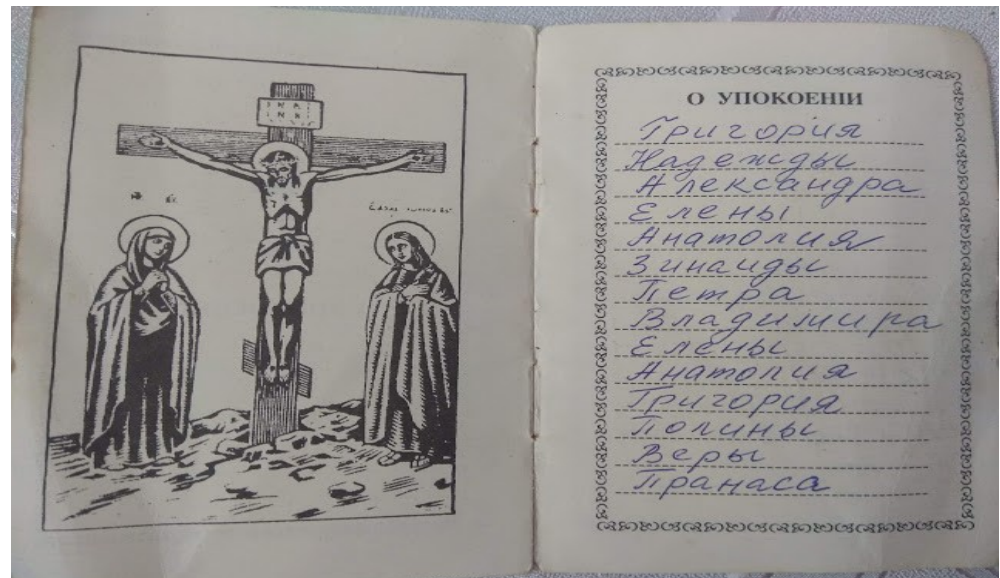 О УПОКОЕНІИ
Григория
Надежды
Александра
Елены
Анатолия
Зинаиды
Петра
Владимира
Елены
Анатолия
Григория
Полины
Веры
Пранаса